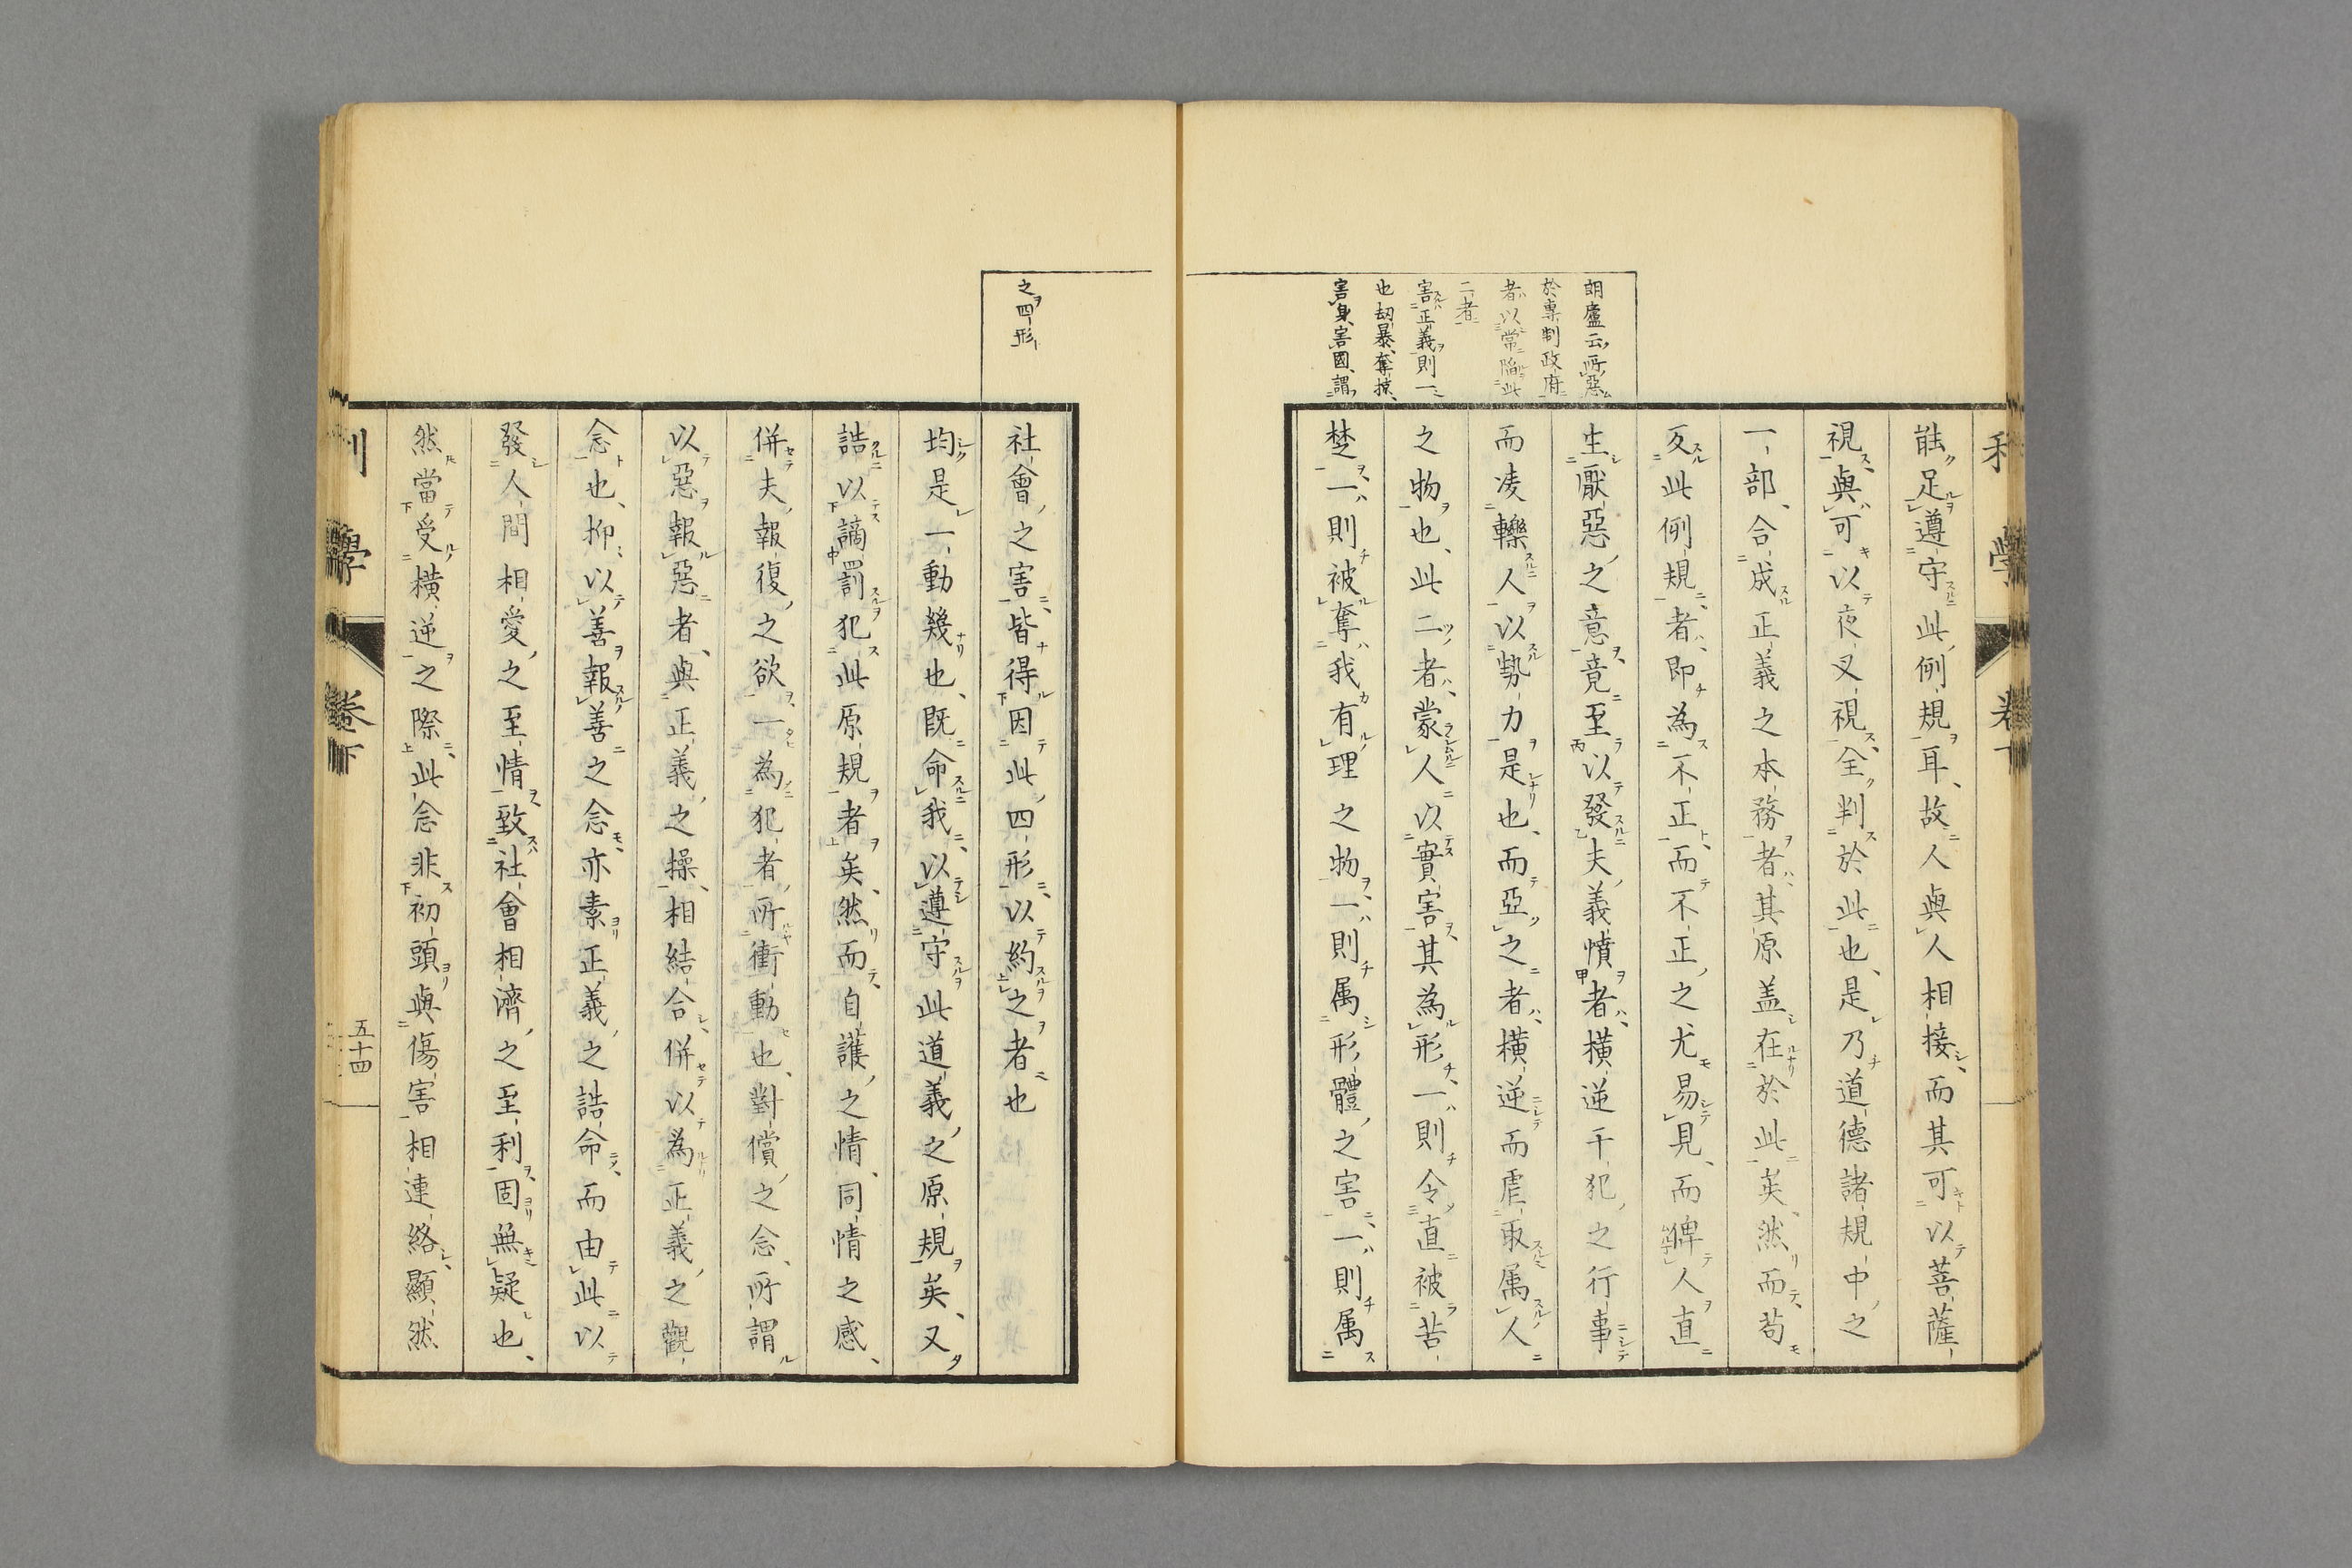 利學 卷下
能足遵守此例規耳、故人與人相接、而其可以菩薩
視與可以夜叉視、全判於此也、是乃道德諸規中之
一部、合成正義之本務者、其原盖在於此矣、然而苟
反此例規者、即為不正、而不正之尤易見、而俾人直
生厭惡之意、竟至以發夫義憤者、橫逆干犯之行事
而凌轢人以勢力是也、而亞之者、橫逆而虐取属人
之物也、此二者、蒙人以實害、其為形、一則令直被苦
楚、一則被奪我有理之物、一則属形體之害、一則属
朗廬云所惡
於專制政府
者以常陥此
二者
害正義則一
也劫暴奪掠、
害身害國、謂
之四形
社會之害、皆得因此四形、以約之者也
均是一動幾也、既命我、以遵守此道義之原規矣、又
誥以謫罰犯此原規者矣、然而自護之情、同情之感、
併夫報復之欲、一為犯者所衝動也、對償之念、所謂
以惡報惡者、與正義之操、相結合、併以為正義之觀
念也、抑以善報善之念、亦素正義之誥命、而由此以
發人間相愛之至情、致社會相濟之至利、固無疑也、
然當受橫逆之際、此念非初頭與傷害相連絡、顯然
利學 卷下 五十四